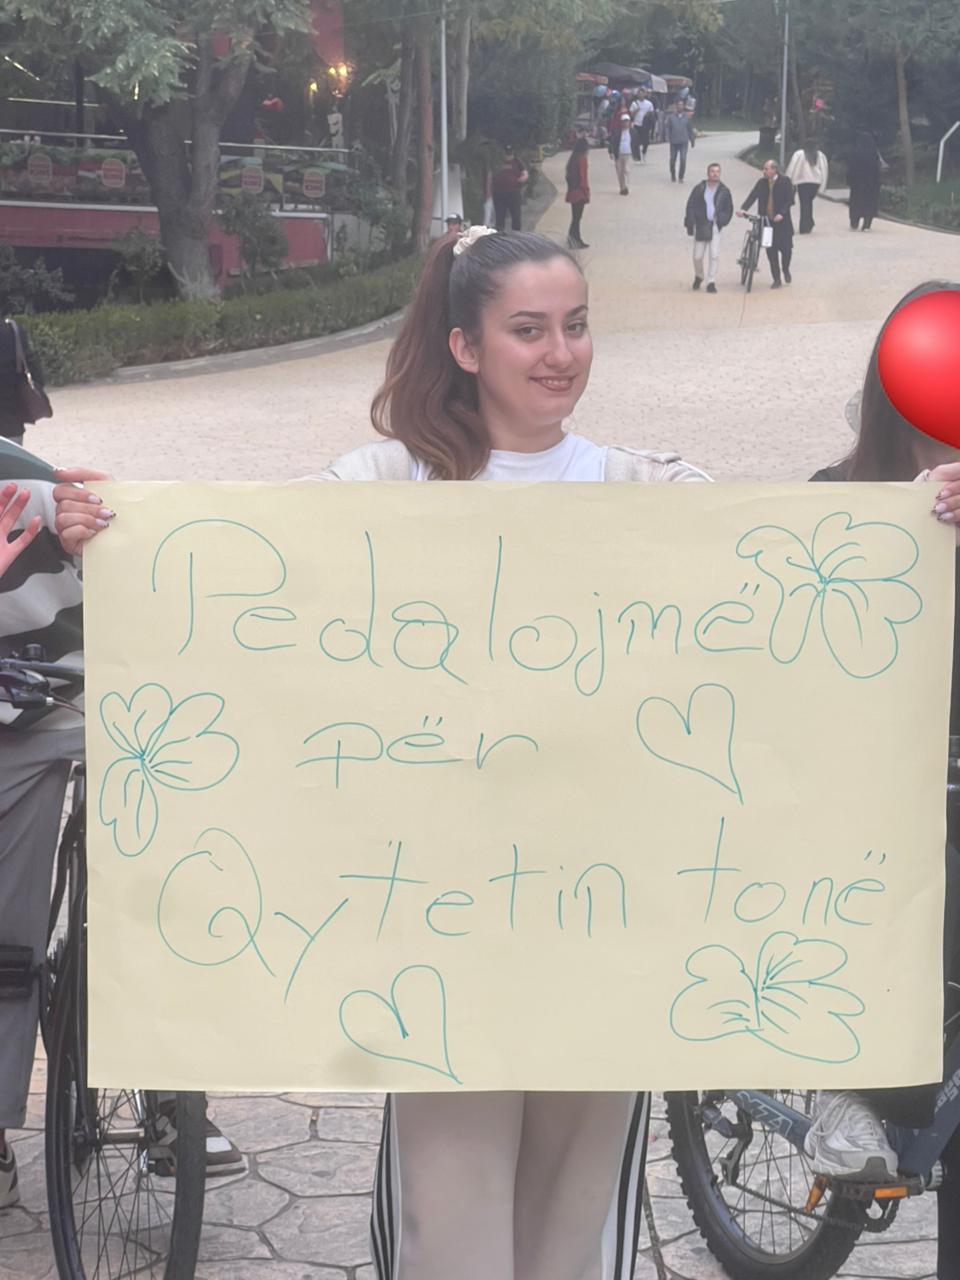 Pedalojmë
për
Qytetin tonë